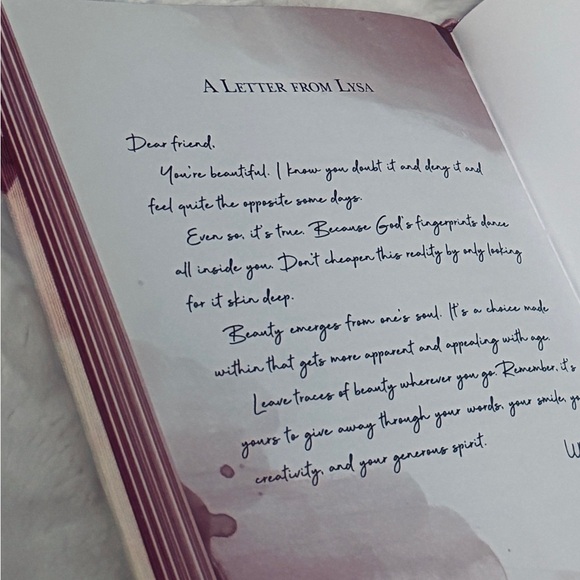 A LETTER FROM LYSA
Dear friend,
You're beautiful. I know you doubt it and deny it and
feel quite the opposite some days.
Even so, it's true. Because God's fingerprints dance
all inside you. Don't cheapen this reality by only looking
for it skin deep.
Beauty emerges from one's soul. It's a choice made
within that gets more apparent and appealing with age.
Leave traces of beauty wherever you go. Remember, it's
yours to give away through your words, your smile,
creativity, and your generous spirit.